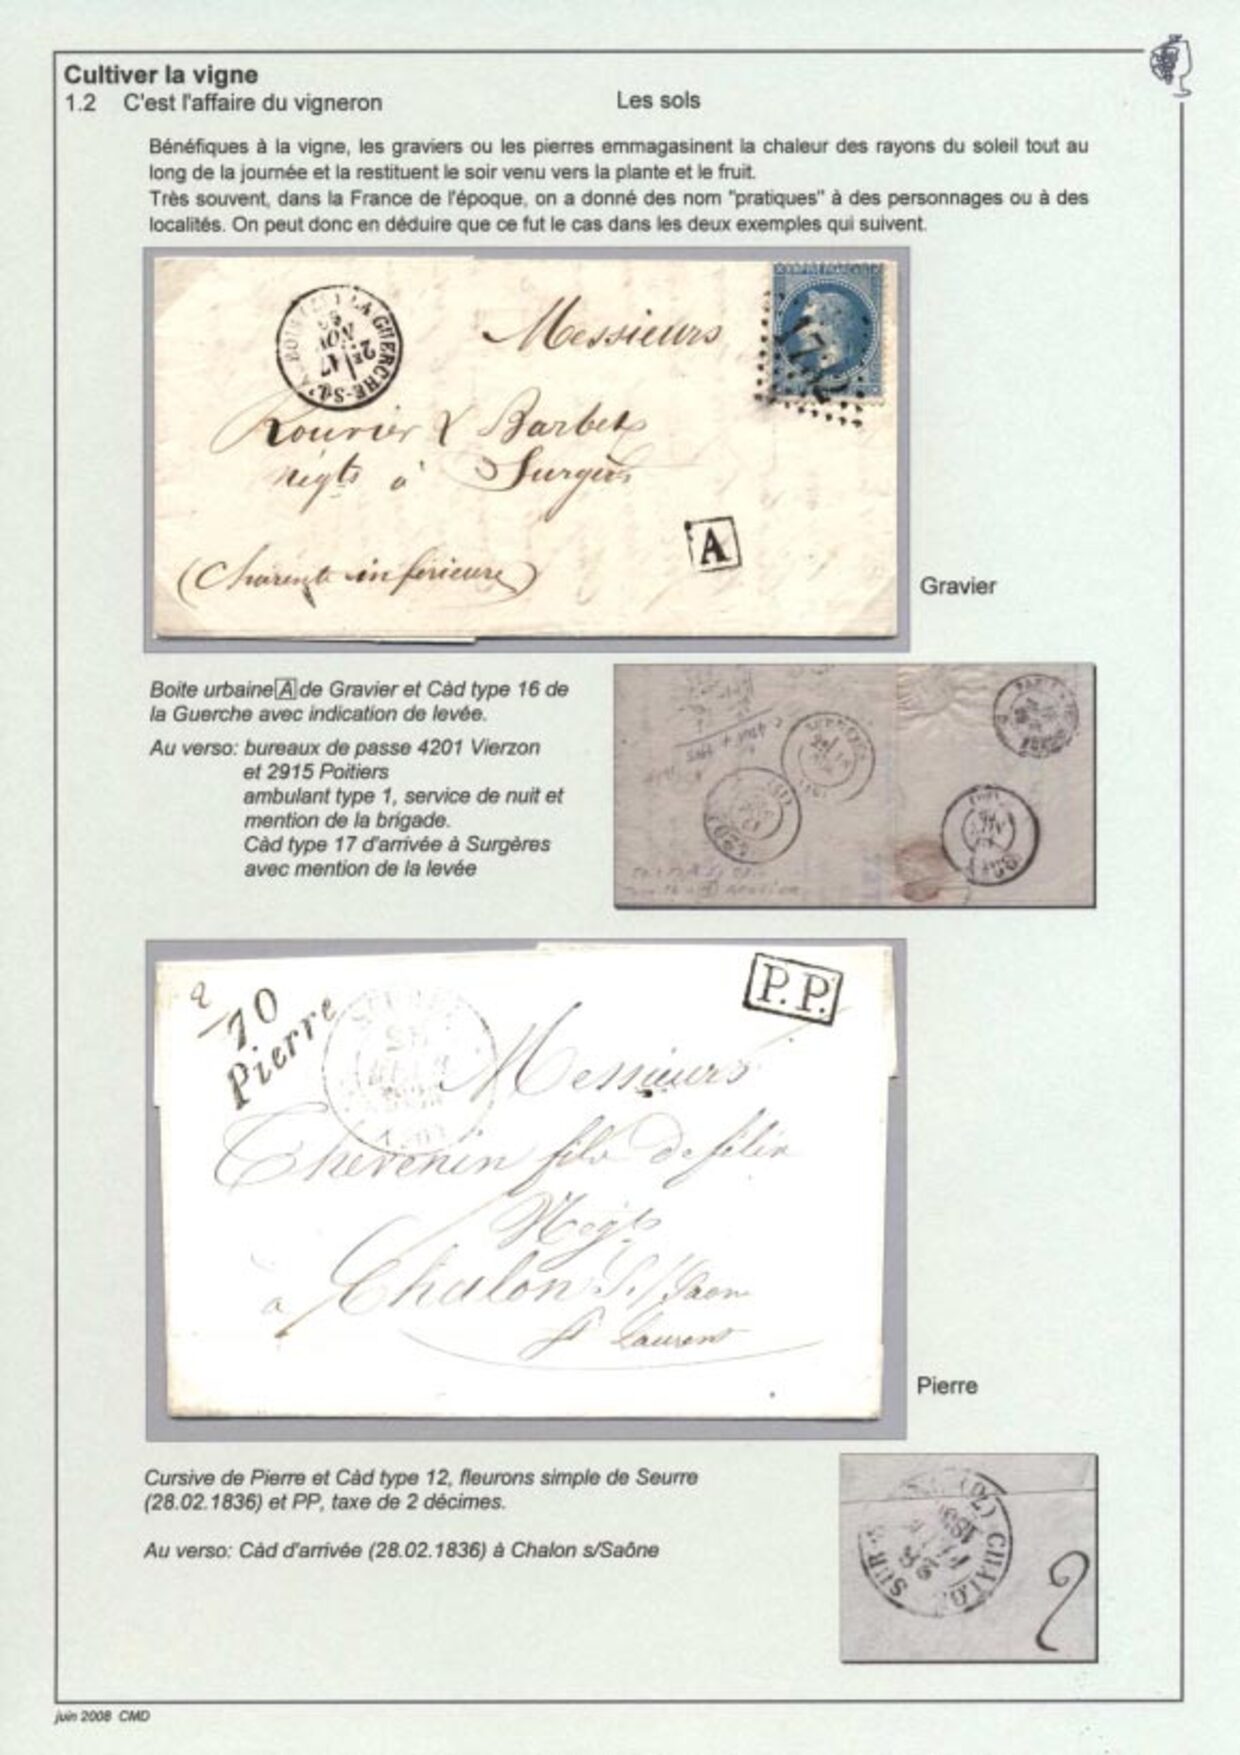 Cultiver la vigne
1.2 C'est l'affaire du vigneron Les sols
Bénéfiques à la vigne, les graviers ou les pierres emmagasinent la chaleur des rayons du soleil tout au
long de la journée et la restituent le soir venu vers la plante et le fruit.
Très souvent, dans la France de l'époque, on a donné des nom "pratiques" à des personnages ou à des
localités. On peut donc en déduire que ce fut le cas dans les deux exemples qui suivent.
LA GUERCHE-S-L'A
2E 17
NOV
EMPIRE FRANÇAIS
Messieurs
Rouvier & Barbet
négts à Surgères
(Charente inférieure)
A
Gravier
Boite urbaine A de Gravier et Càd type 16 de
la Guerche avec indication de levée.
Au verso: bureaux de passe 4201 Vierzon
et 2915 Poitiers
ambulant type 1, service de nuit et
mention de la brigade.
Càd type 17 d'arrivée à Surgères
avec mention de la levée
2
70
Pierre
P.P.
Messieurs
Thevenin fils de félix
Négts
à Chalon S./Saone
St Laurent
Pierre
Cursive de Pierre et Càd type 12, fleurons simple de Seurre
(28.02.1836) et PP, taxe de 2 décimes.
Au verso: Càd d'arrivée (28.02.1836) à Chalon s/Saône
CHALON SUR
2
juin 2008 CMD